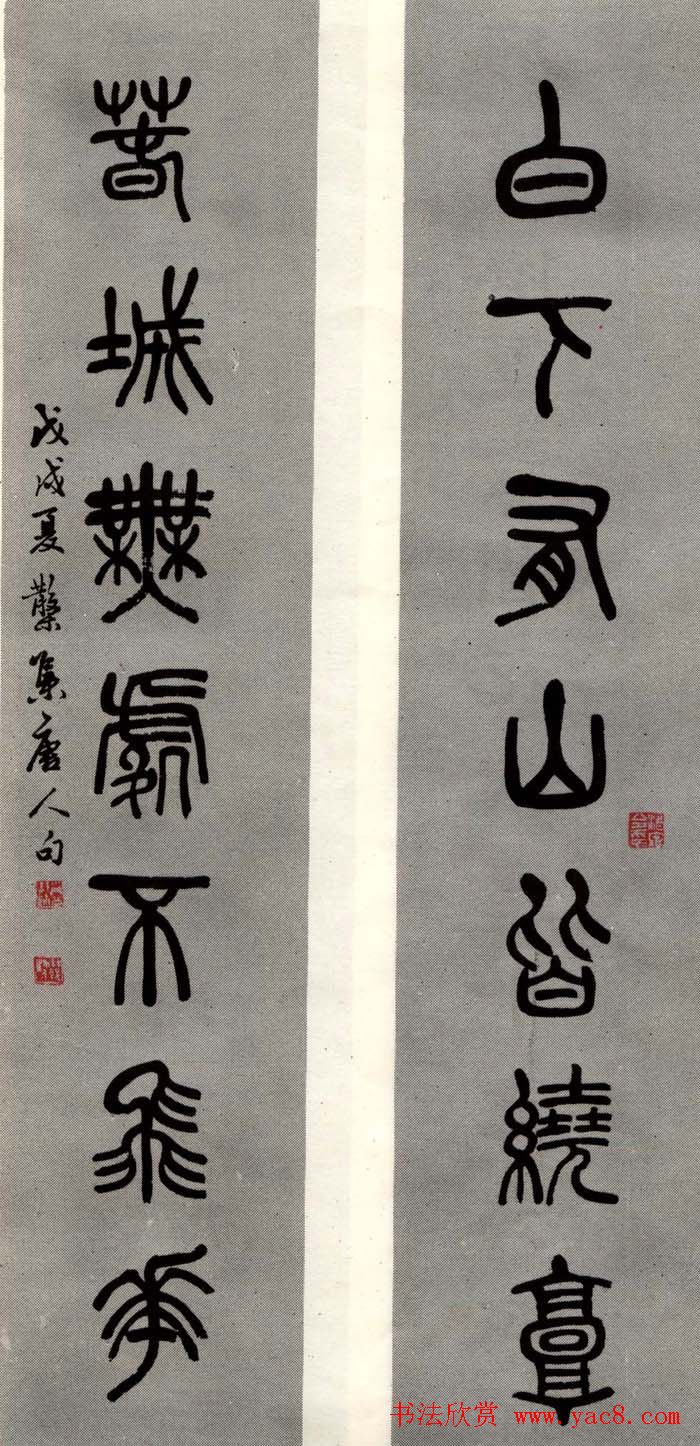 白下有山皆繞郭
春城無處不飛花
戊戌夏散木集唐人句
书法欣赏 www.yac8.com